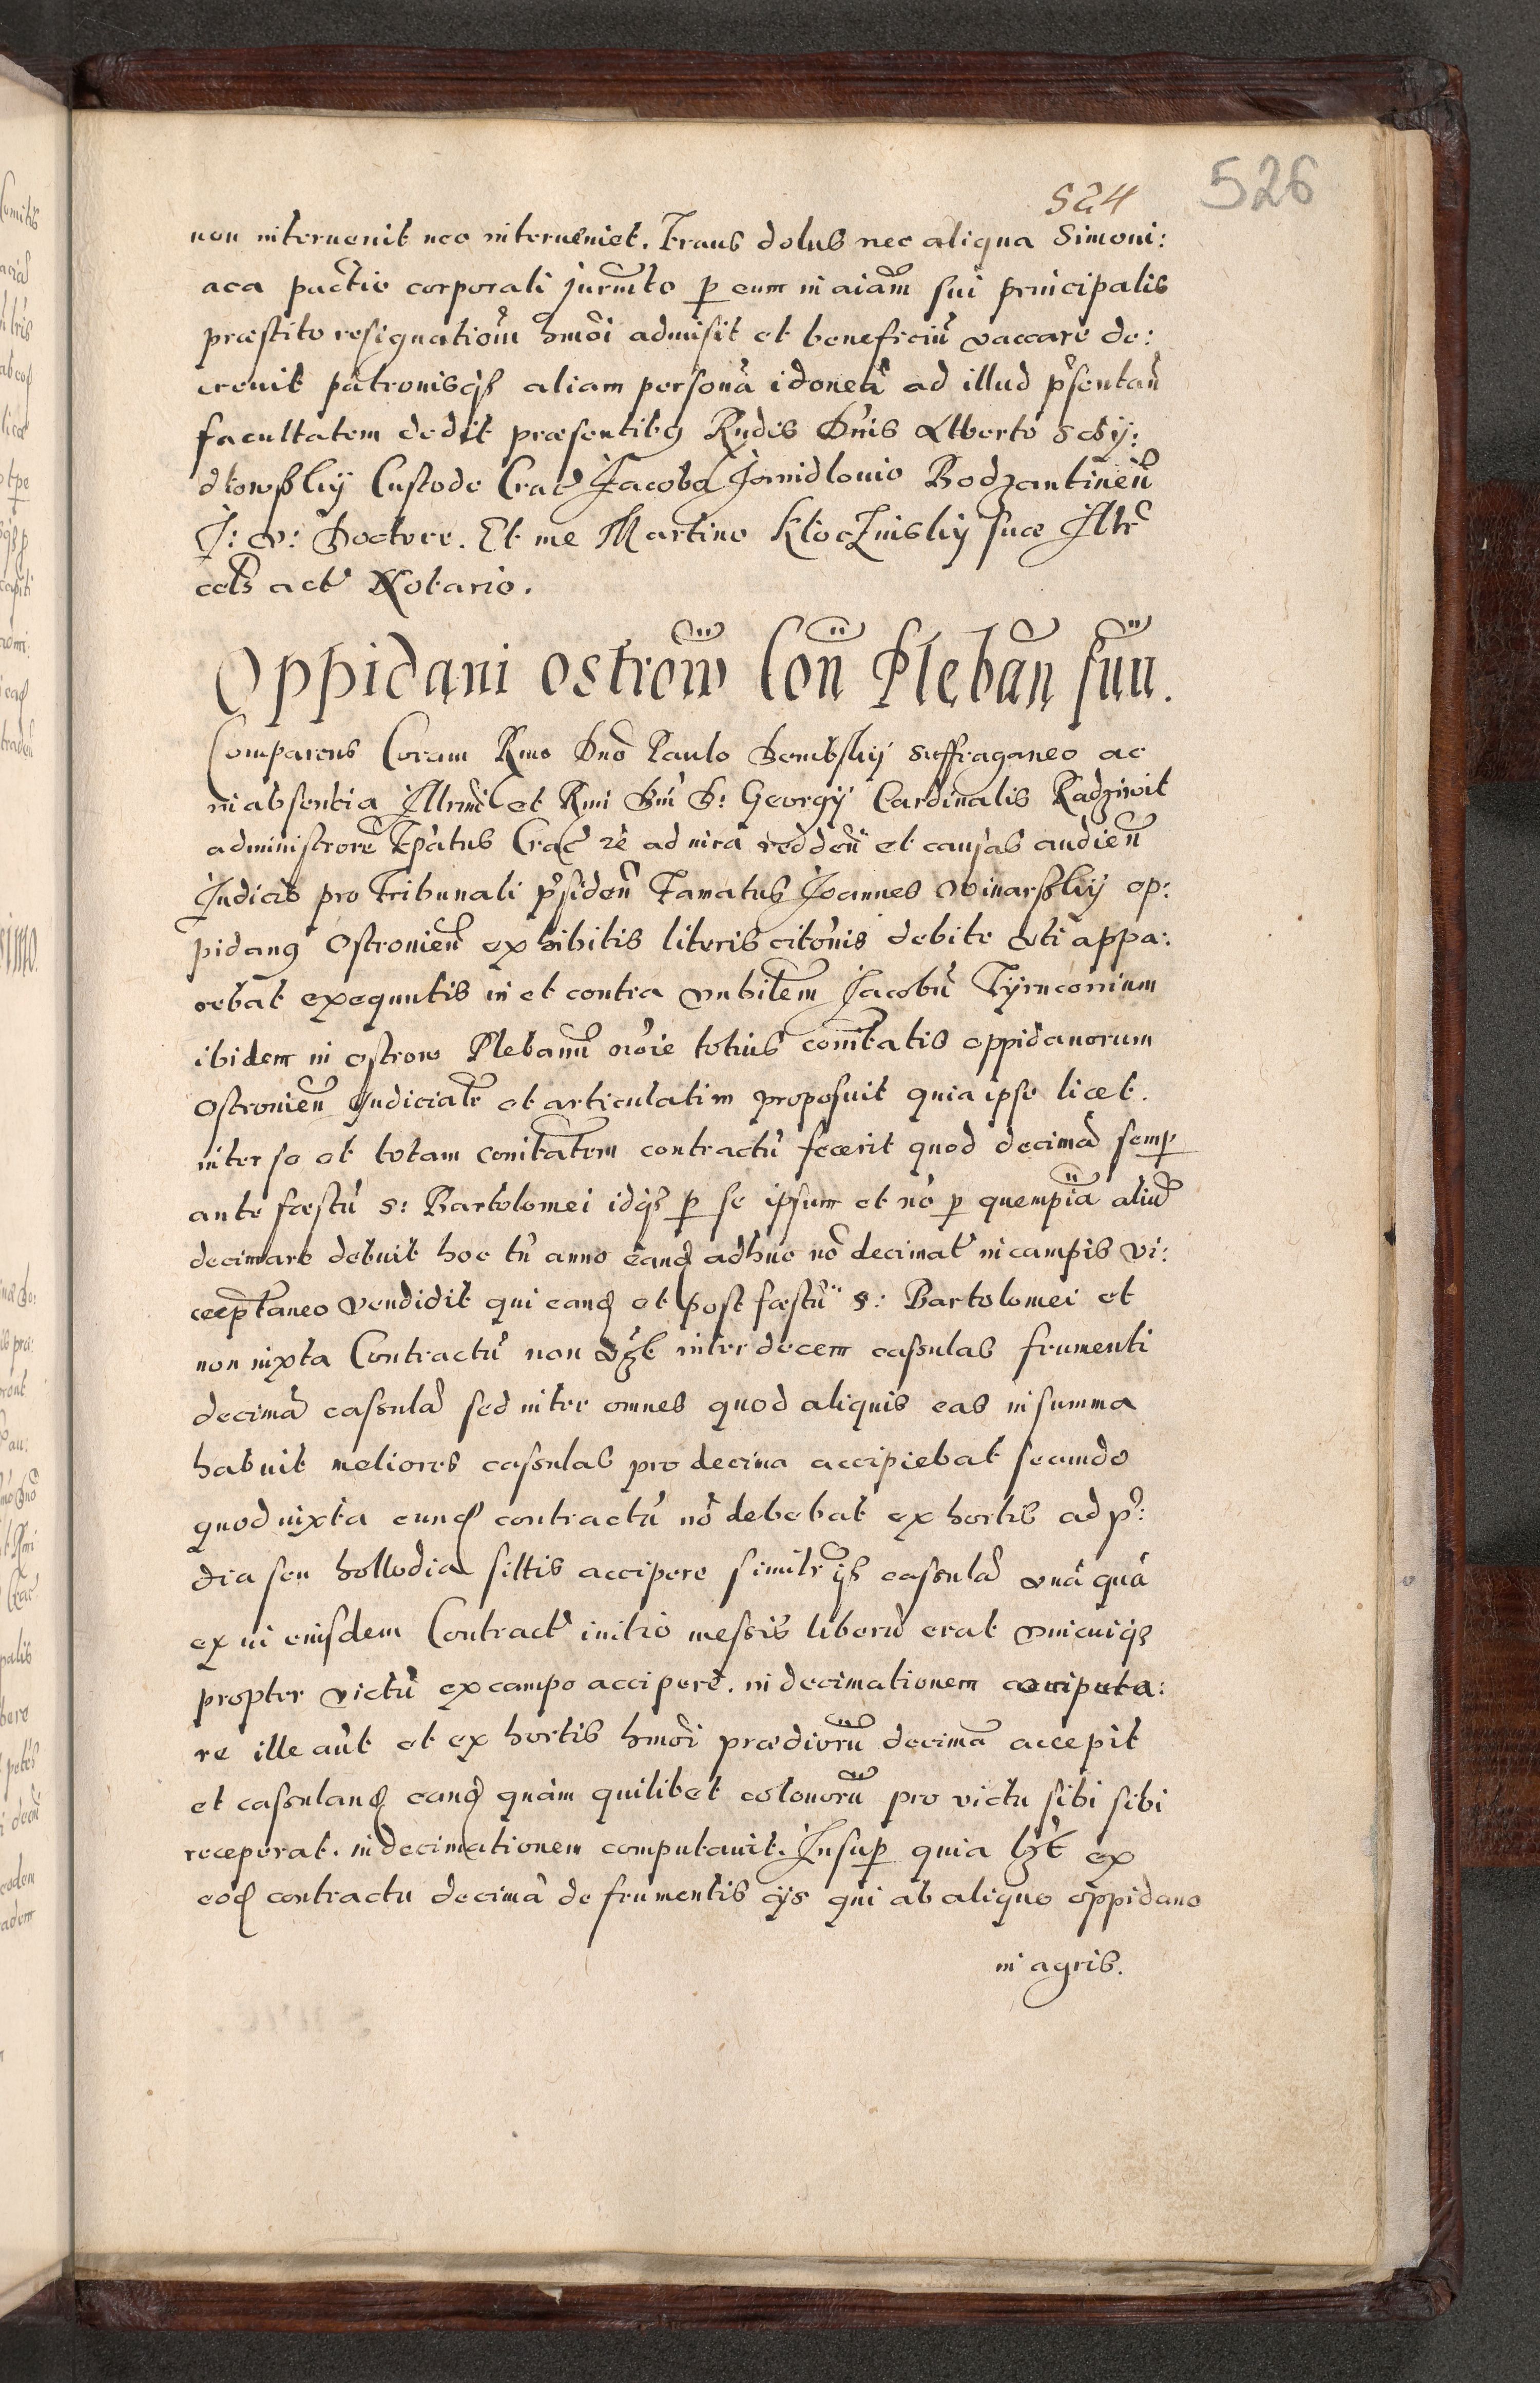 526
524
non interuenit nec interueniet. Fraus dolus nec aliqua Simoni:
aca pactio corporali jurmto p eum in aiam sui principalis
præstito resignationem hmoi admisit et beneficiu vaccare de:
creuit patronisq aliam persona idonea ad illud psentan
facultatem dedit præsentibg Rndis Dnis Alberto
Custode Crac Jacobo Bodzantinen
J: V: Doctore. Et me Martino Kłoczinskij suæ Illtr
cels act Notario.
Oppidani ostrow Con Pleban suu.
Comparens Coram Rmo Dno Paulo Dembskij Suffraganeo ac
in absentia Illrmi et Rmi Dni D: Georgij Cardinalis Radziwil
administrore Epatus Crac ad redden et causas audien
Judicis pro Tribunali psiden Famatus Joannes Winarskij op:
pidang Ostronien exhibitis literis citonis debite vti appa:
rebat exequutis in et contra Jacobu
ibidem in ostrow Plebanu noie totius comitatis oppidanorum
Ostronien Judicialr et articulatim proposuit quia ipse licet.
inter se et totam comitatem contractu fecerit quod decima semp
ante fæstu S: Bartolomei idq p se ipsum et no p quempia aliu
decimare debuit hoc tn anno eand adhuc no decimat in campis vi:
ceeptaneo vendidit qui eand et post fæstu S: Bartolomei et
non iuxta Contractu non vzt inter decem cassulas frumenti
decima cassula sed inter omnes quod aliquis eas in summa
habuit meliores cassulas pro decima accipiebat secundo
quod iuxta eund contractu no debebat ex hortis ad p:
dia seu sittis accipere similr cassula vna qua
ex vi eiusdem Contract initio messis liberu erat vnicuiq
propter victu ex campo accipere. in decimationem computa:
re ille aut et ex hortis hmoi prædioru decima accepit
et cassuland eand quam quilibet colonoru pro victu sibi sibi
receperat. in decimationem computauit. Insup quia lzt ex
eod contractu decima de frumentis ijs qui ab aliquo oppidano
in agris.